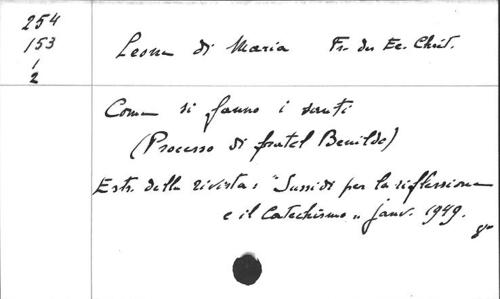 254
153
1
2
Leone di Maria Fr. des Ec. Chrét.
Come si fanno i santi
(Processo di fratel Benildo)
Estr. della rivista: "Sussidi per la riflessione
e il Catechismo" janv. 1949.
8°